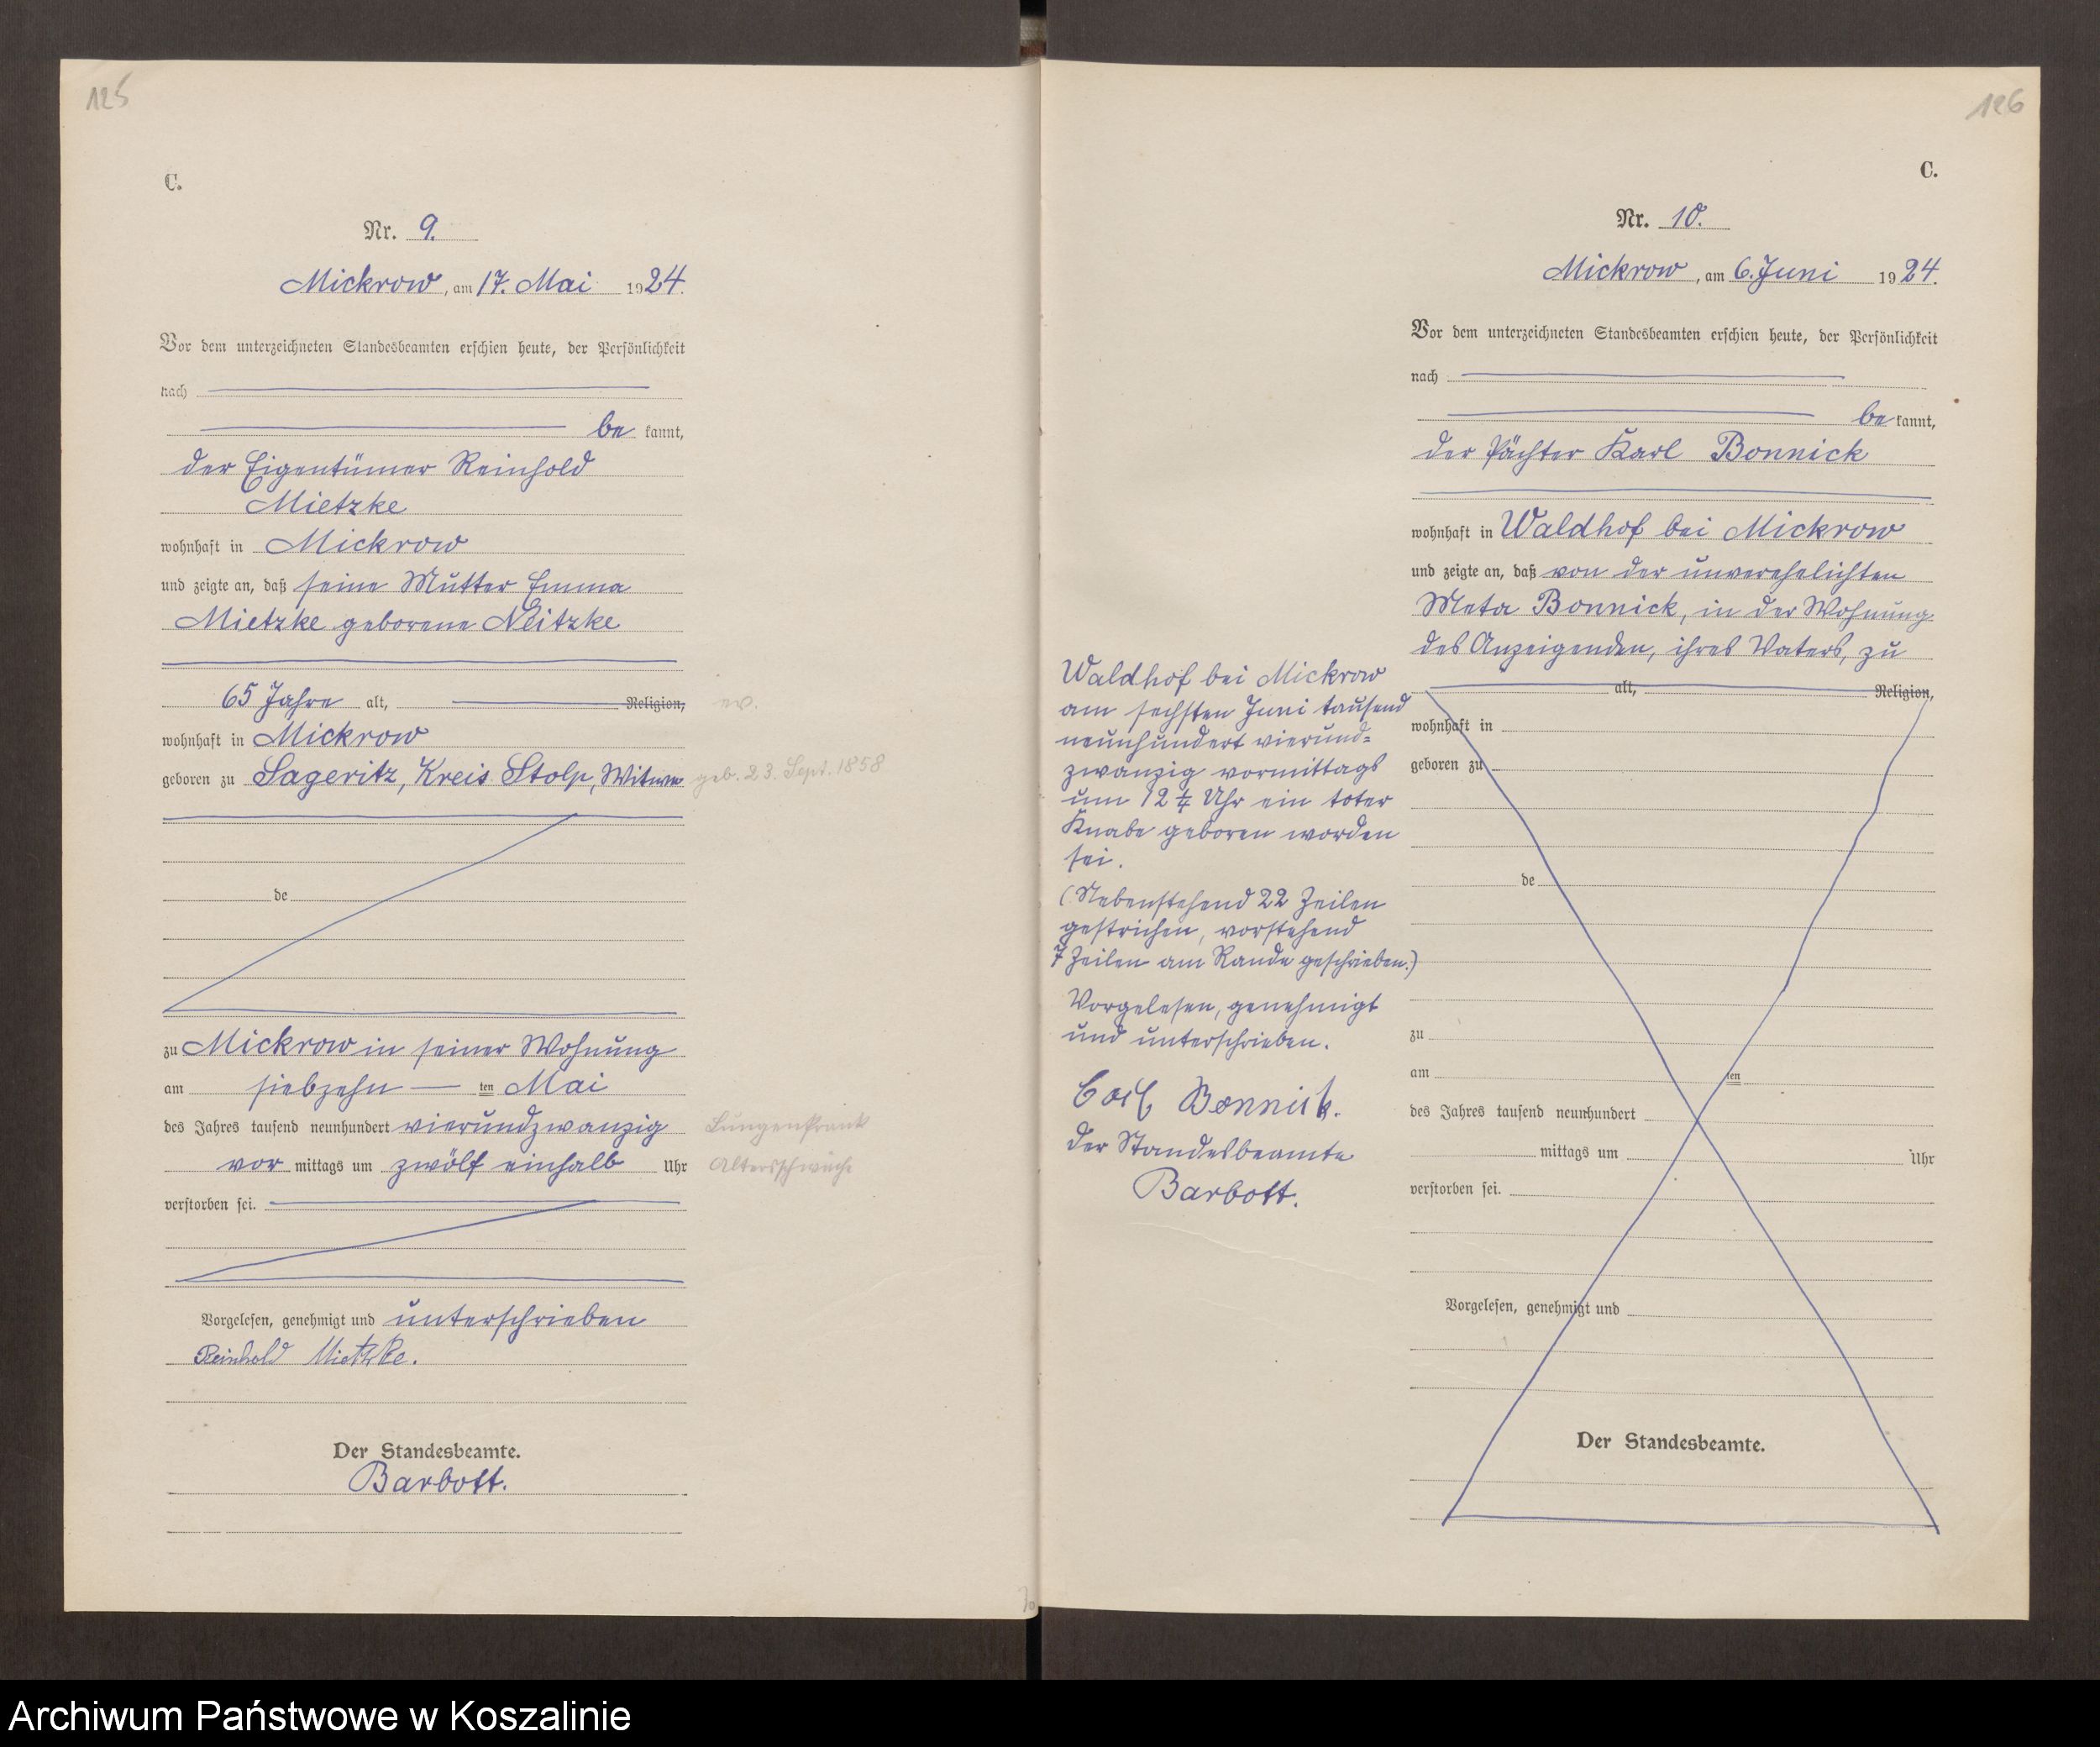 125
C.
Nr. 9.
Mickrow, am 17. Mai 1924.
Vor dem unterzeichneten Standesbeamten erschien heute, der Persönlichkeit
nach
be kannt,
der Eigentümer Reinhold
Mietzke
wohnhaft in Mickrow
und zeigte an, daß seine Mutter Emma
Mietzke geborene Neitzke
65 Jahre alt, Religion, ev.
wohnhaft in Mickrow
geboren zu Sageritz, Kreis Stolp, Witwe geb. 23. Sept. 1858
de
zu Mickrow in seiner Wohnung
am siebzehn ten Mai
des Jahres tausend neunhundert vierundzwanzig Lungenkrank
vor mittags um zwölf einhalb Uhr Altersschwäche
verstorben sei.
Vorgelesen, genehmigt und unterschrieben
Reinhold Mietzke.
Der Standesbeamte.
Barbott.
126
C.
Nr. 10.
Mickrow, am 6. Juni 1924.
Vor dem unterzeichneten Standesbeamten erschien heute, der Persönlichkeit
nach
be kannt,
der Pächter Karl Bonnick
wohnhaft in Waldhof bei Mickrow
und zeigte an, daß von der unverehelichten
Meta Bonnick, in der Wohnung
des Anzeigenden, ihres Vaters, zu
Waldhof bei Mickrow
am sechsten Juni tausend
neunhundert vierund=
zwanzig vormittags
um 12 1/4 Uhr ein toter
Knabe geboren worden
sei.
(Nebenstehend 22 Zeilen
gestrichen, vorstehend
7 Zeilen am Rande geschrieben.)
Vorgelesen, genehmigt
und unterschrieben.
Carl Bonnick.
Der Standesbeamte
Barbott.
alt, Religion,
wohnhaft in
geboren zu
de
zu
am ten
des Jahres tausend neunhundert
mittags um Uhr
verstorben sei.
Vorgelesen, genehmigt und
Der Standesbeamte.
Archiwum Państwowe w Koszalinie